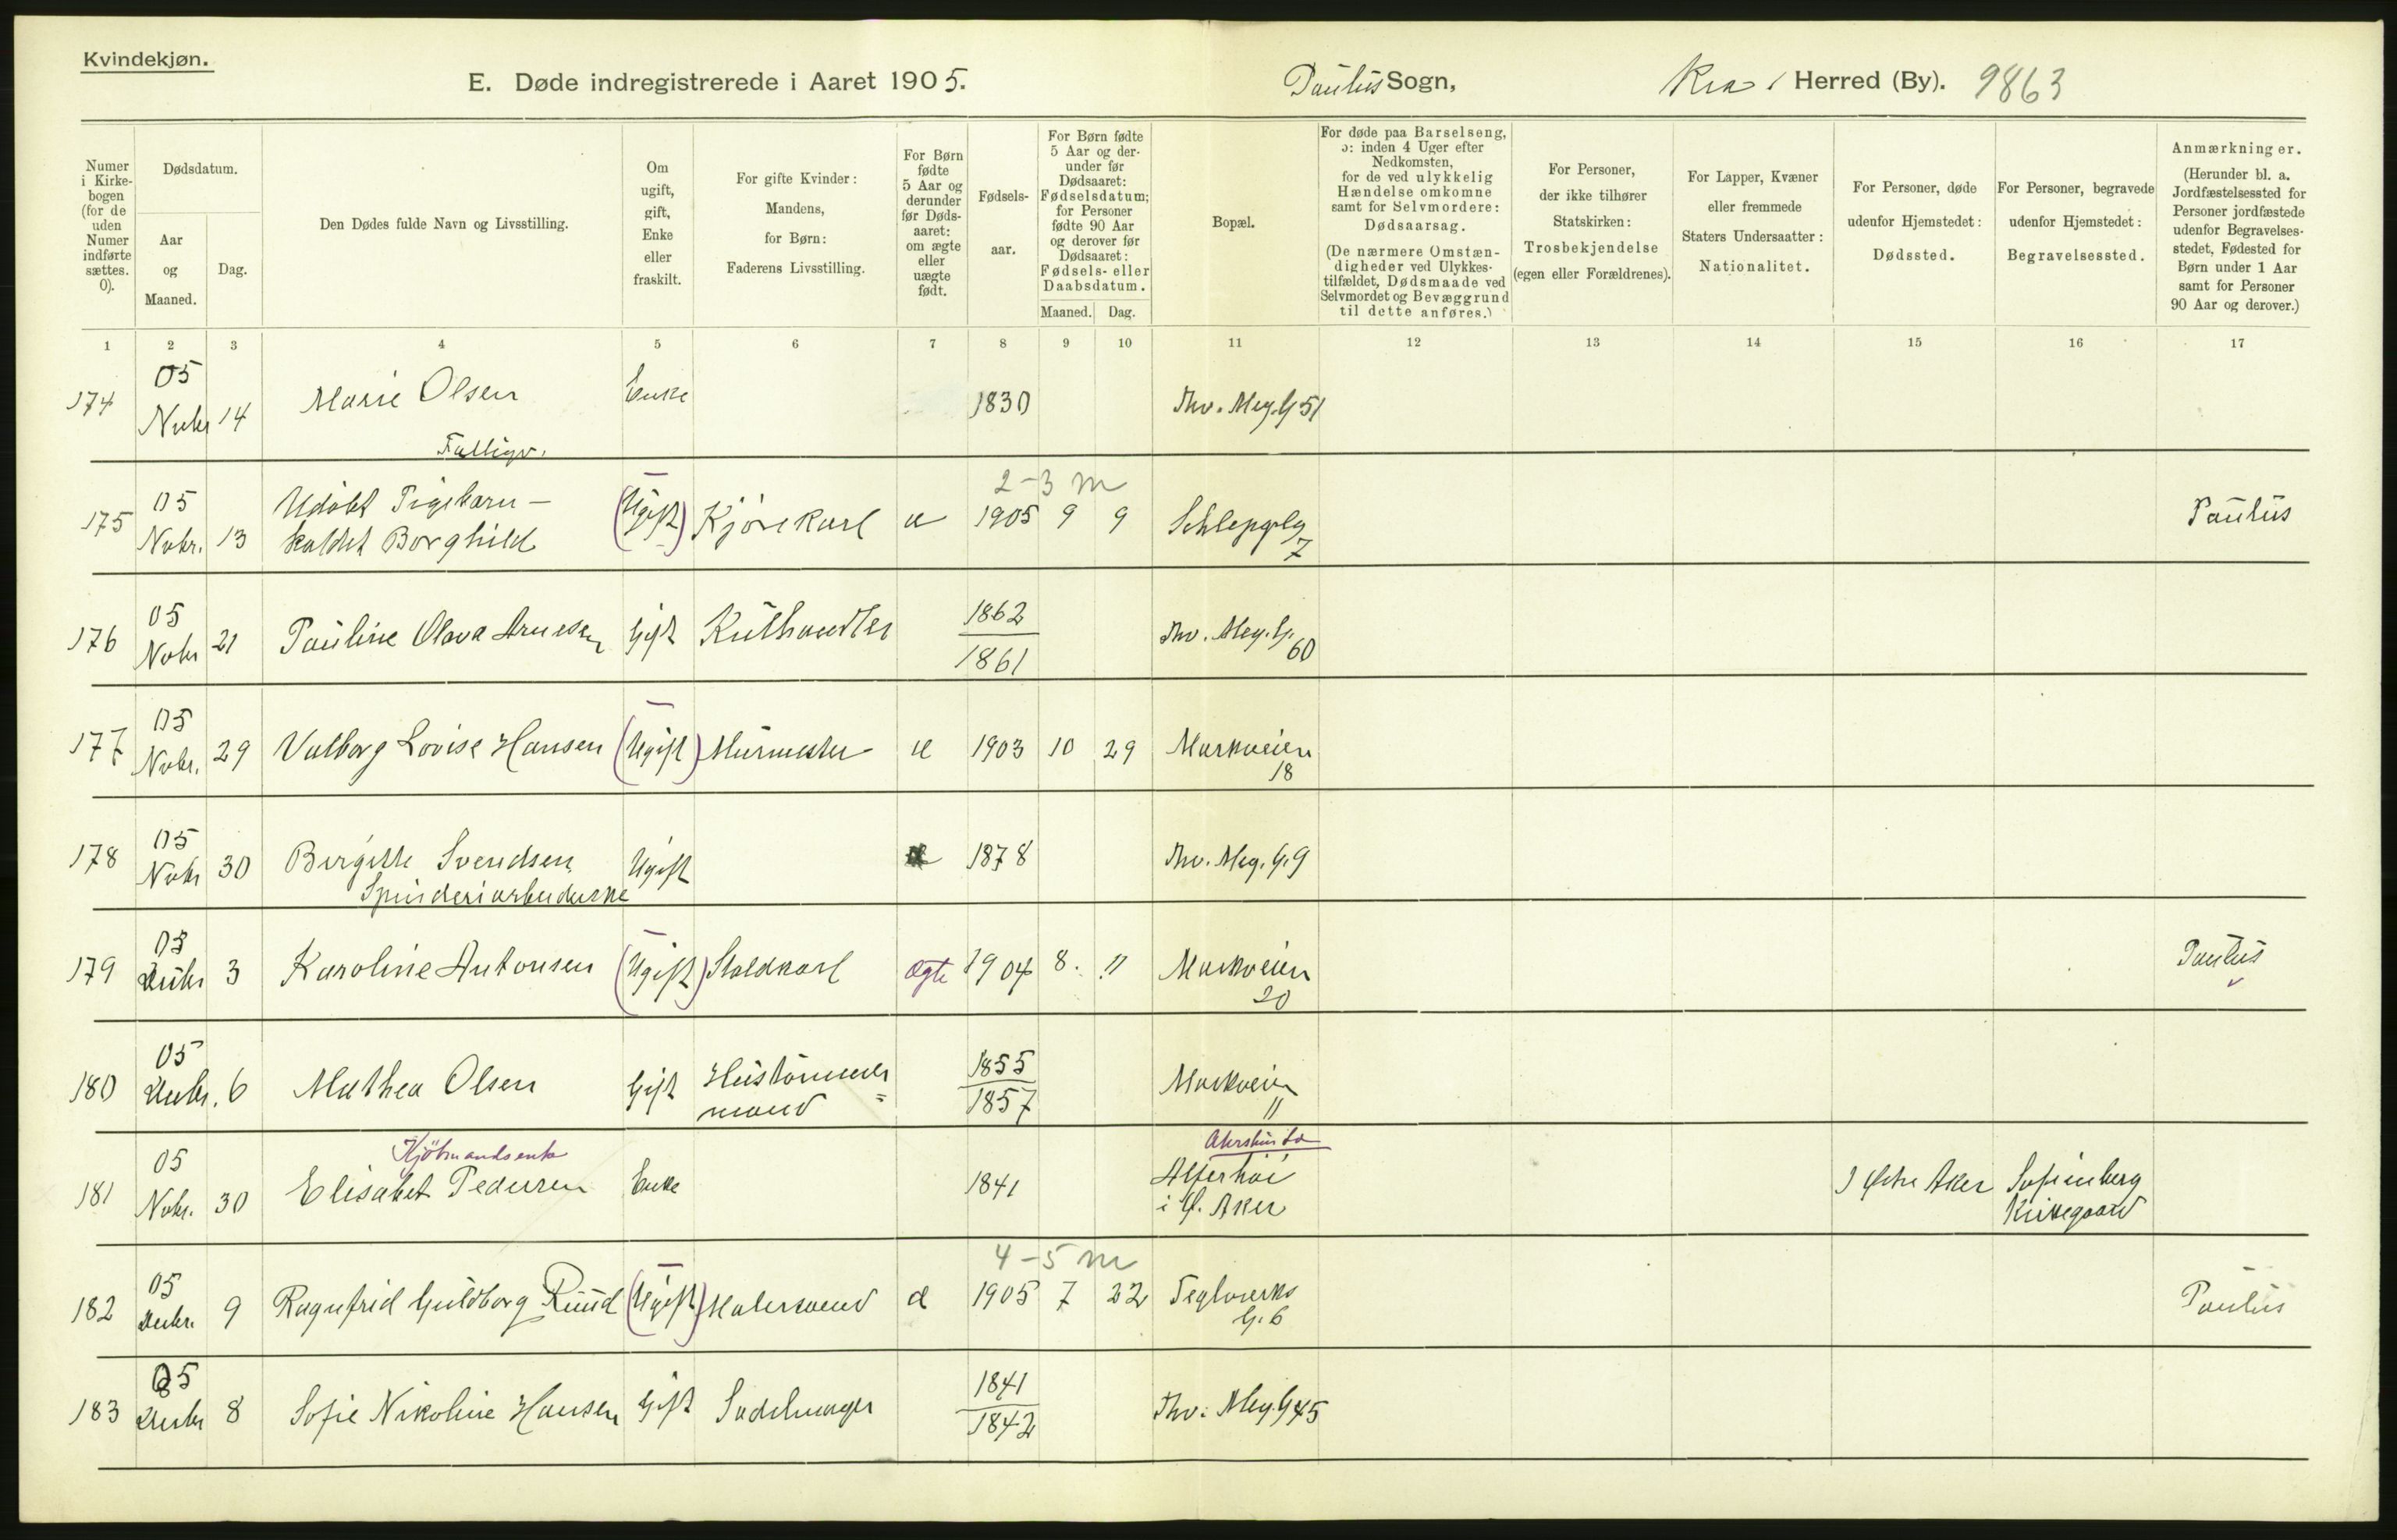 Kvindekjøn.
E. Døde indregistrerede i Aaret 1905. Paulus Sogn, Kra Herred (By). 9863
Numer i Kirke-bogen (for de uden Numer indførte sættes. 0).
Dødsdatum.
Aar og Maaned.
Dag.
Den Dødes fulde Navn og Livsstilling.
Om ugift, gift, Enke eller fraskilt.
For gifte Kvinder: Mandens, for Børn: Faderens Livsstilling.
For Børn fødte 5 Aar og derunder før Døds-aaret: om ægte eller uægte født.
Fødsels-aar.
For Børn fødte 5 Aar og der-under før Dødsaaret: Fødselsdatum; for Personer fødte 90 Aar og derover før Dødsaaret: Fødsels- eller Daabsdatum.
Maaned. Dag.
Bopæl.
For døde paa Barselseng, ɔ: inden 4 Uger efter Nedkomsten, for de ved ulykkelig Hændelse omkomne samt for Selvmordere: Dødsaarsag.
(De nærmere Omstæn-digheder ved Ulykkes-tilfældet, Dødsmaade ved Selvmordet og Bevæggrund til dette anføres.)
For Personer, der ikke tilhører Statskirken: Trosbekjendelse (egen eller Forældrenes).
For Lapper, Kvæner eller fremmede Staters Undersaatter: Nationalitet.
For Personer, døde udenfor Hjemstedet: Dødssted.
For Personer, begravede udenfor Hjemstedet: Begravelsessted.
Anmærkninger.
(Herunder bl. a. Jordfæstelsessted for Personer jordfæstede udenfor Begravelses-stedet, Fødested for Børn under 1 Aar samt for Personer 90 Aar og derover.)
1 2 3 4 5 6 7 8 9 10 11 12 13 14 15 16 17
174 05 Novbr 14 Marie Olsen Enke 1830 Thv. Mey. G 51
Fattigv.
2-3 m
175 05 Novbr. 13 Udøbt Pigebarn – kaldet Borghild (Ugift) Kjørekarl u 1905 9 9 Schleppelg 7 Paulus
176 05 Novbr 21 Pauline Olava Arnesen Gift Kulhandler 1862 1861 Thv. Mey. G. 60
177 05 Novbr. 29 Valborg Lovise Hansen (Ugift) Murmester u 1903 10 29 Markveien 18
178 05 Novbr 30 Birgitte Svendsen Ugift 1878 Thv. Meg. G. 9
Spinderiarbeiderske
179 05 Decbr 3 Karoline Antonsen (Ugift) Staldkarl ægte 1904 8. 11 Markveien 20 Paulus
180 05 Decbr. 6 Mathea Olsen Gift Hustømmermand 1855 1857 Markveien 11
Kjöbmandsenke
181 05 Novbr. 30 Elisabet Pedersen Enke 1841 i Ø. Aker I Østre Aker Sofienberg Kirkegaard
4-5 m
182 05 Decbr. 9 Ragnfrid Guldborg Ruud (Ugift) Malersvend 1905 7 22 Teglverks G. 6 Paulus
183 05 Decbr 8 Sofie Nikoline Hansen Gift Sadelmager 1841 1842 Thv. Mey. G 45